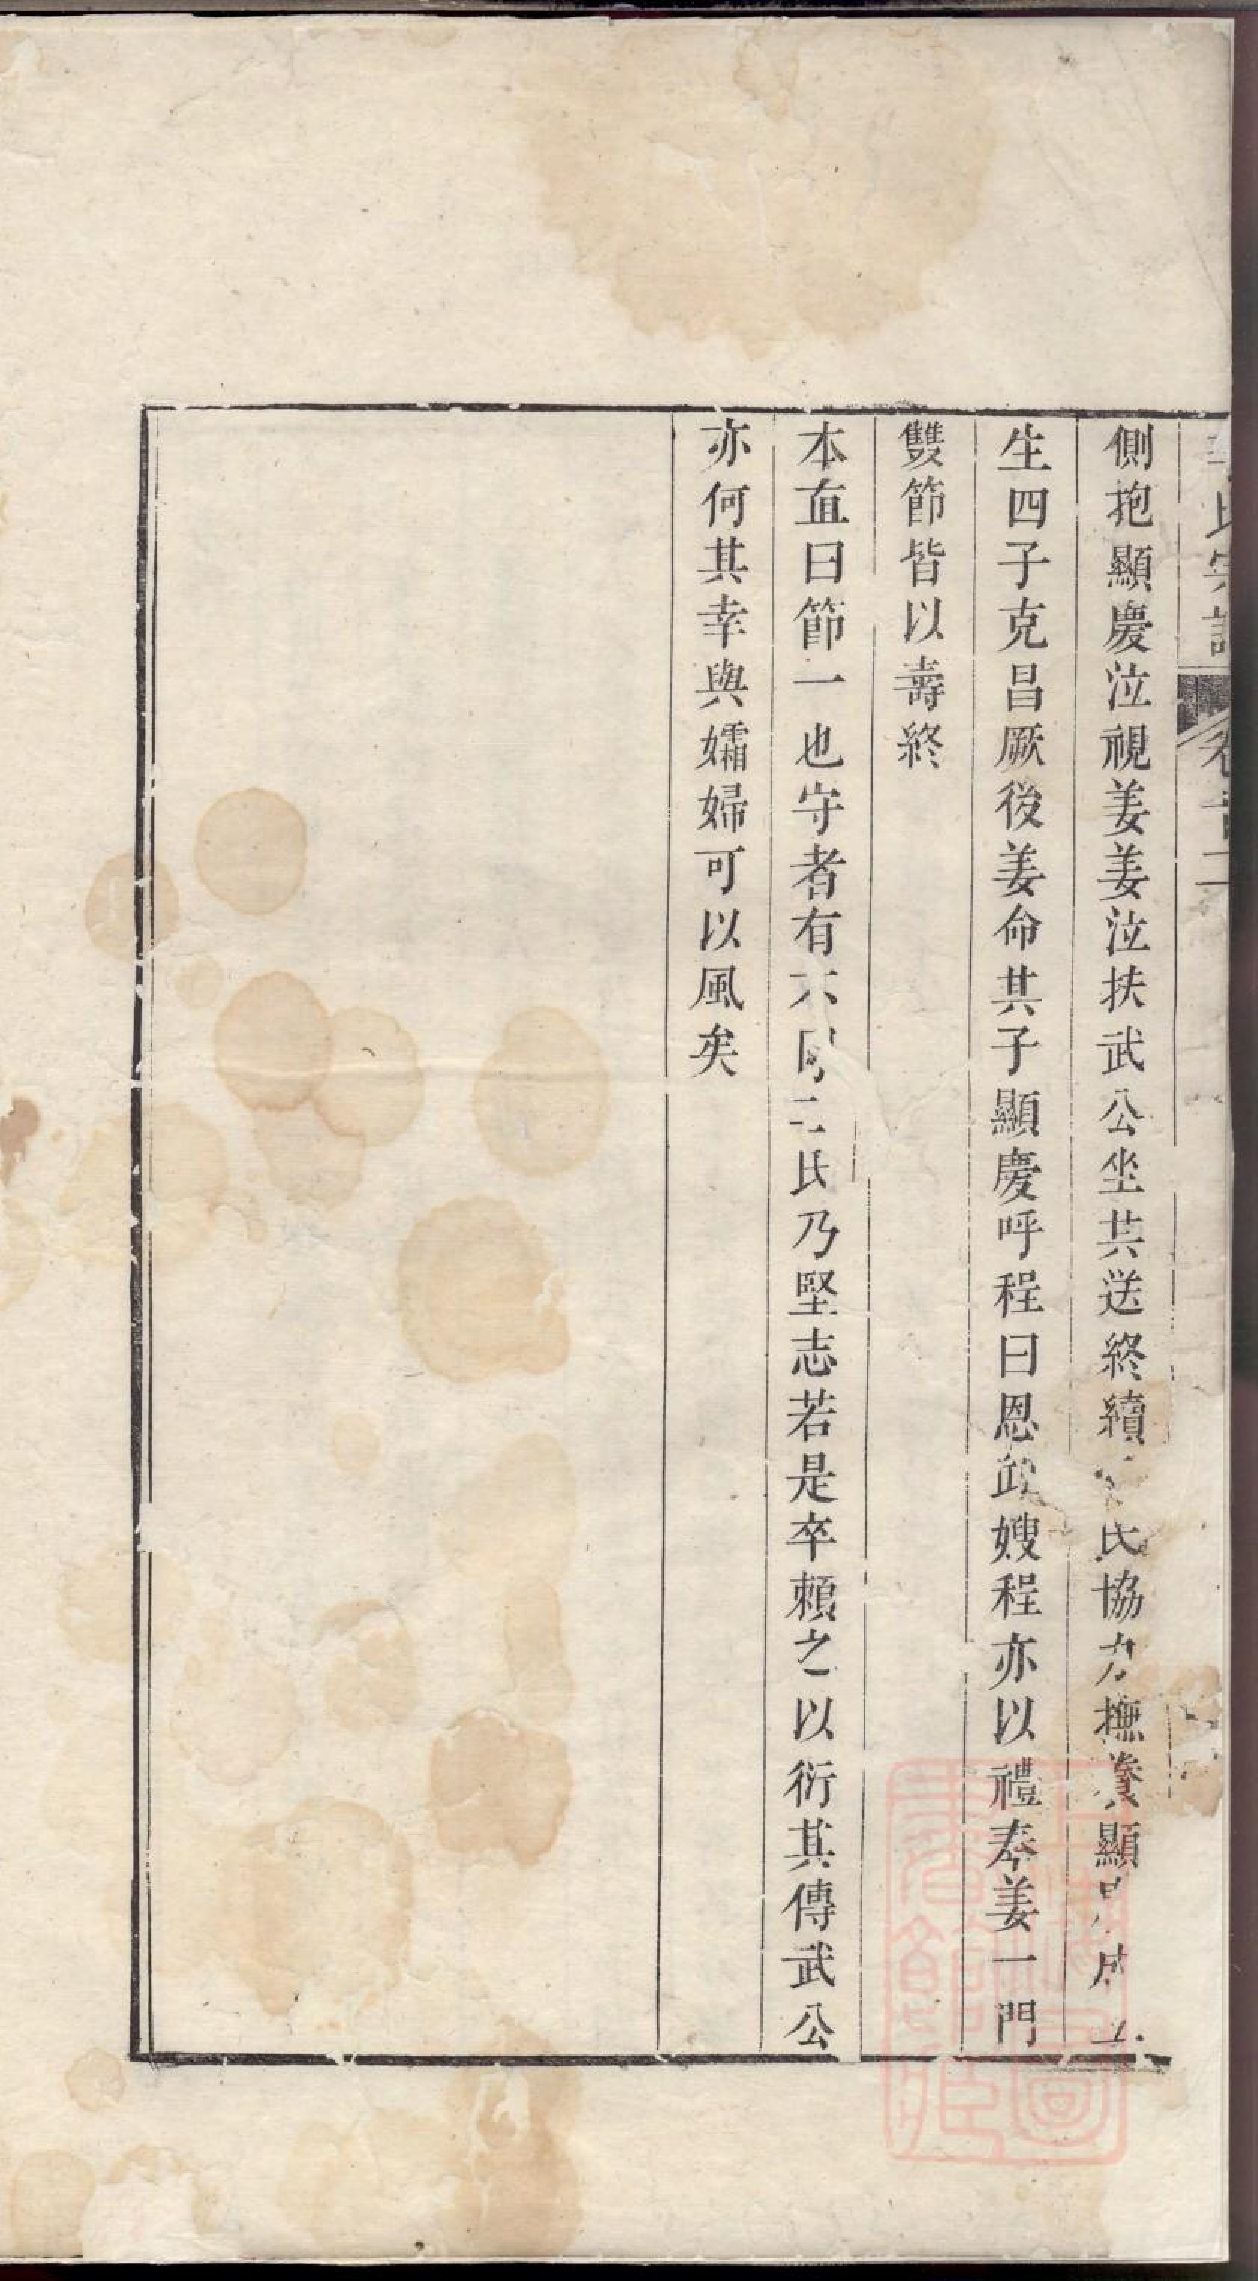 氏宗譜 卷首二
側抱顯慶泣視姜姜泣扶武公坐共送終續 氏協力撫養顯
生四子克昌厥後姜命其子顯慶呼程曰恩武嫂程亦以禮奉姜一門
雙節皆以壽終
本直曰節一也守者有不同二氏乃堅志若是卒賴之以衍其傳武公
亦何其幸與孀婦可以風矣